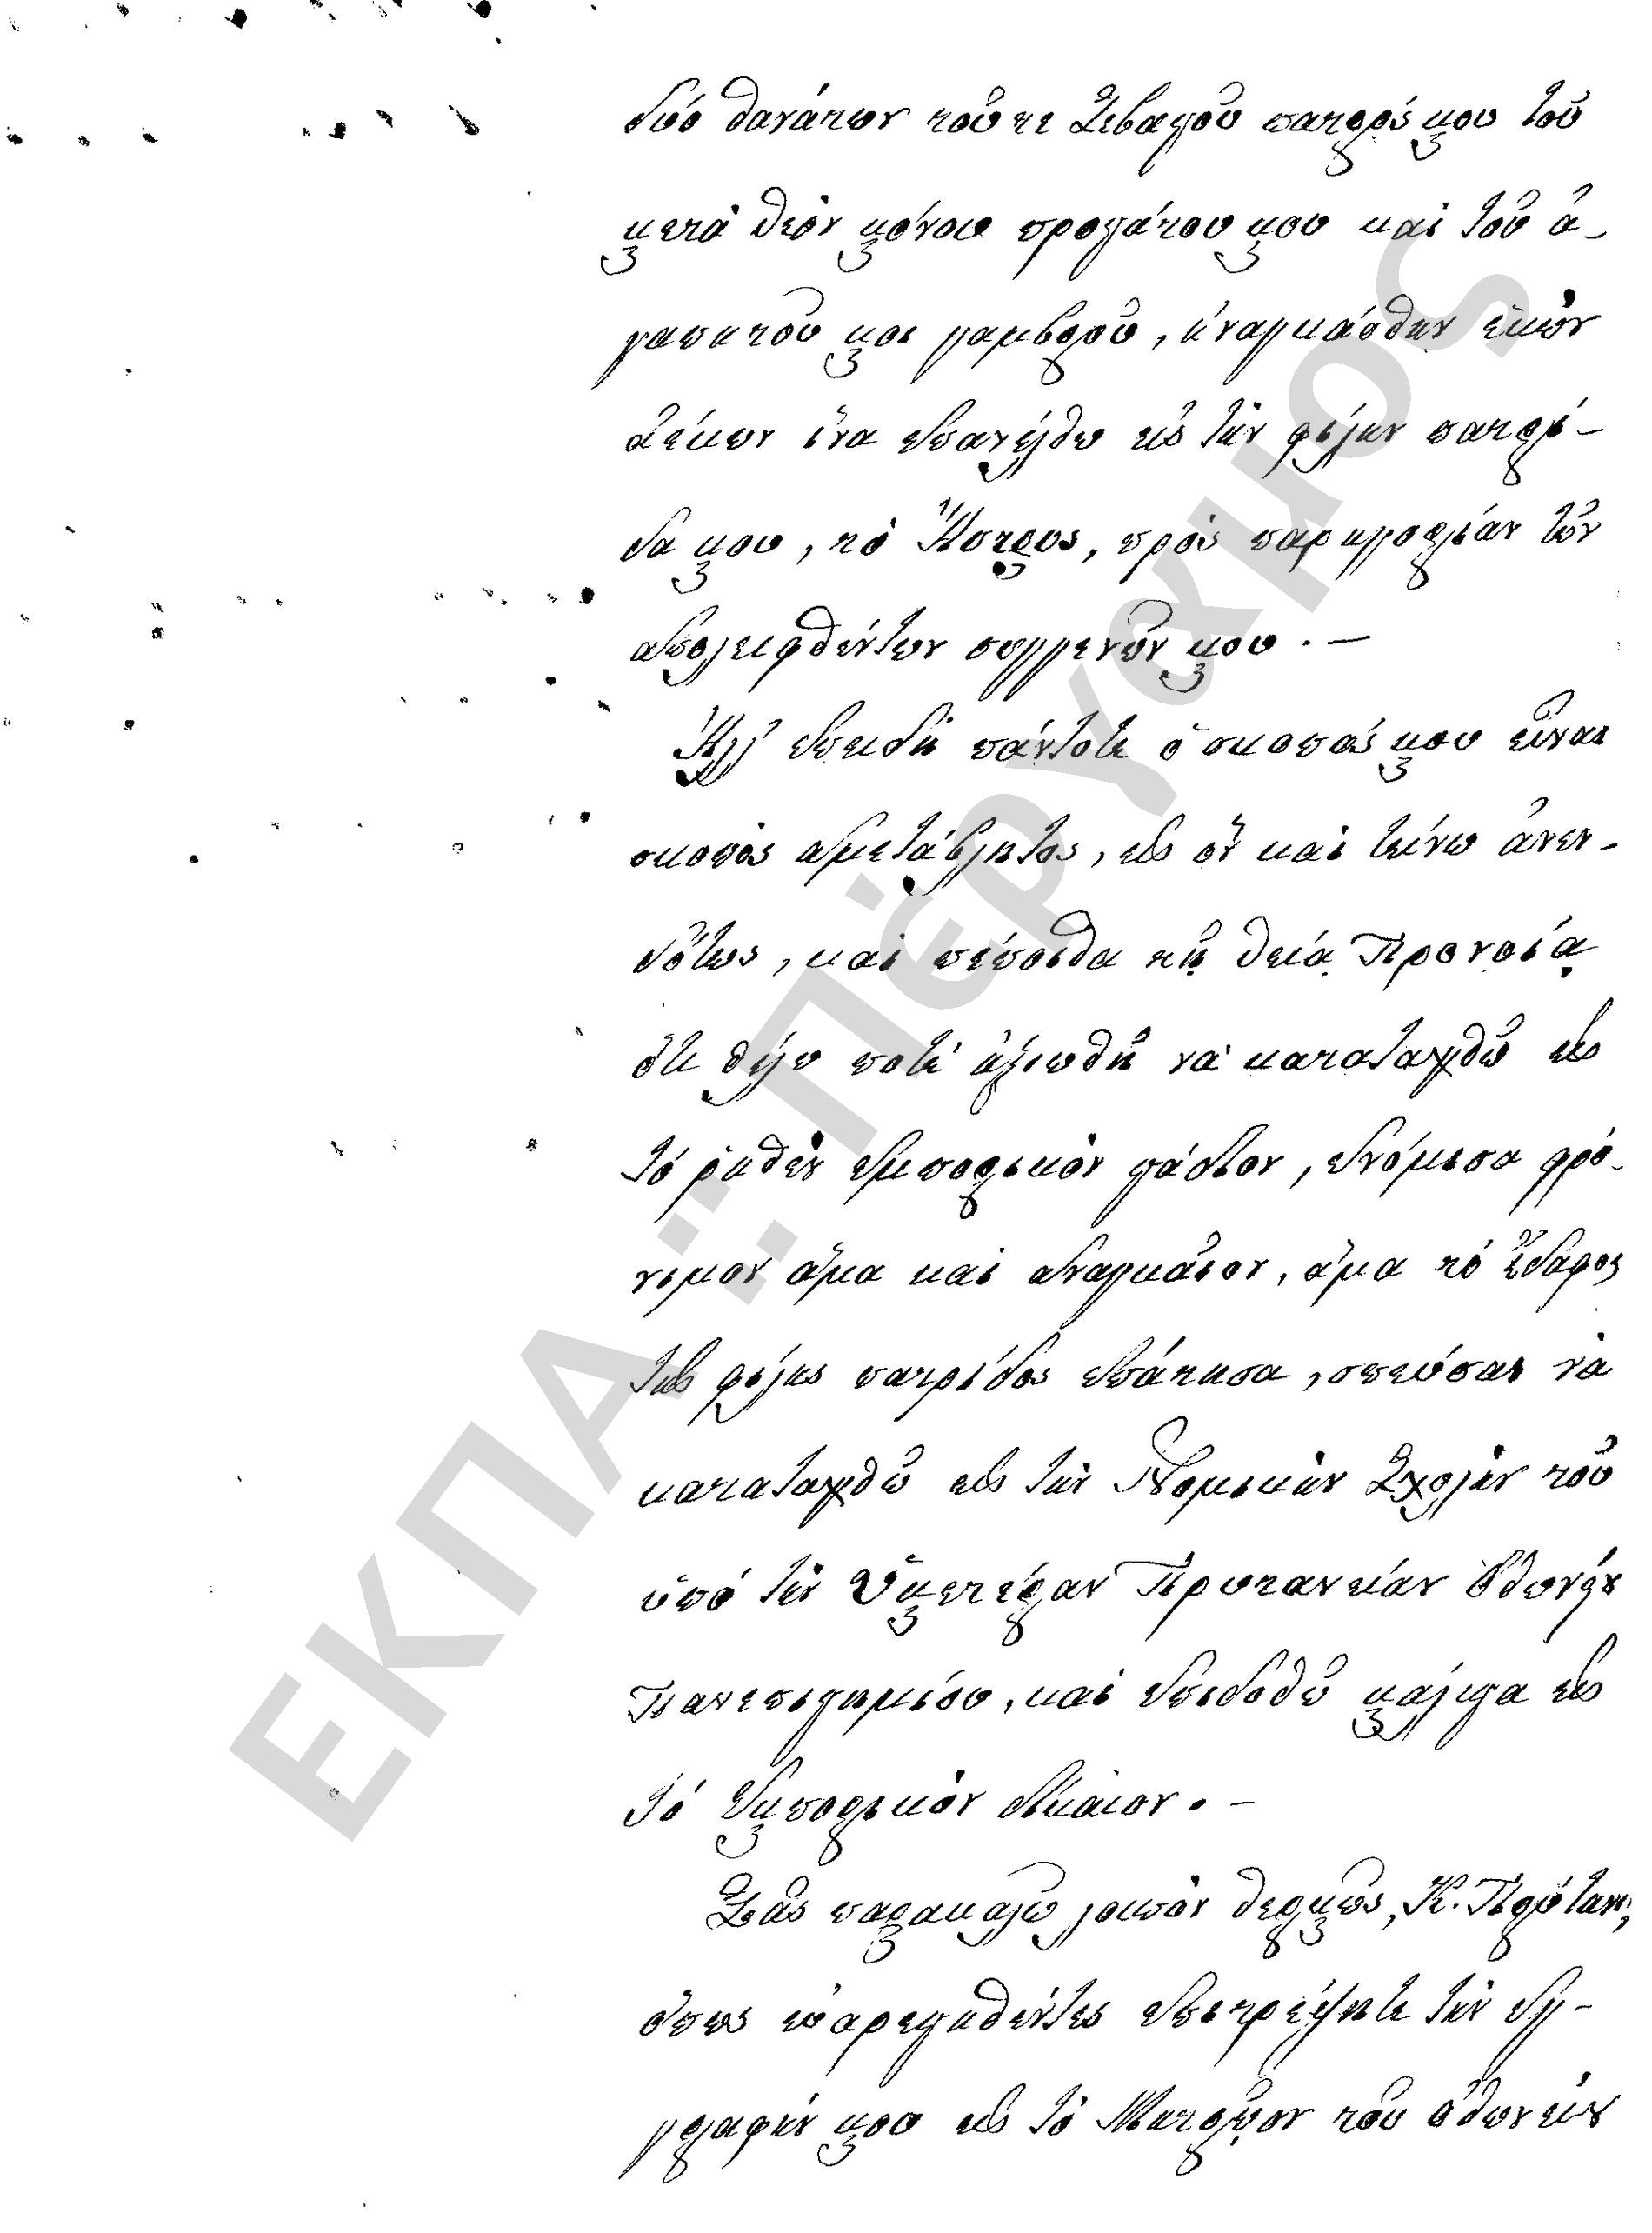 δύο θανάτων τοῦ τε Σεβαστοῦ πατρός μου τοῦ
μετὰ θεὸν μόνου προστάτου μου καὶ τοῦ ἀ-
γαπητοῦ μοι γαμβροῦ, ἠναγκάσθην ἑκὼν
ἀέκων ἵνα ἐπανέλθω εἰς τὴν φίλην πατρί-
δα μου, τὸ Ἄστρος, πρὸς παρηγορίαν τῶν
ἀπολειφθέντων συγγενῶν μου . —
Ἀλλ' ἐπειδὴ πάντοτε ὁ σκοπός μου εἶναι
σκοπὸς ἀμετάβλητος, εἰς ὃν καὶ τείνω ἀνεν-
δότως, καὶ πέποιθα τῇ θείᾳ Προνοίᾳ
ὅτι θέλω ποτὲ ἀξιωθῆ νὰ καταταχθῶ εἰς
τὸ ῥηθὲν ἐμπορικὸν στάδιον, ἐνόμισα φρό-
νιμον ἅμα καὶ ἀναγκαῖον, ἅμα τὸ ἔδαφος
τῆς φίλης πατρίδος ἐπάτησα, σπεύσας νὰ
καταταχθῶ εἰς τὴν Νομικὴν Σχολὴν τοῦ
ὑπὸ τὴν Ὑμετέραν Πρυτανείαν Ὀθωνείου
Πανεπιστημίου, καὶ ἐπιδοθῶ μάλιστα εἰς
τὸ Ἐμπορικὸν δίκαιον . —
Σᾶς παρακαλῶ λοιπὸν θερμῶς, Κ. Πρύτανι,
ὅπως εὐαρεστηθέντες ἐπιτρέψητε τὴν ἐγ-
γραφήν μου εἰς τὸ Μητρῷον τοῦ Ὀθωνείου
ΕΚΠΑ "Πέργαμος